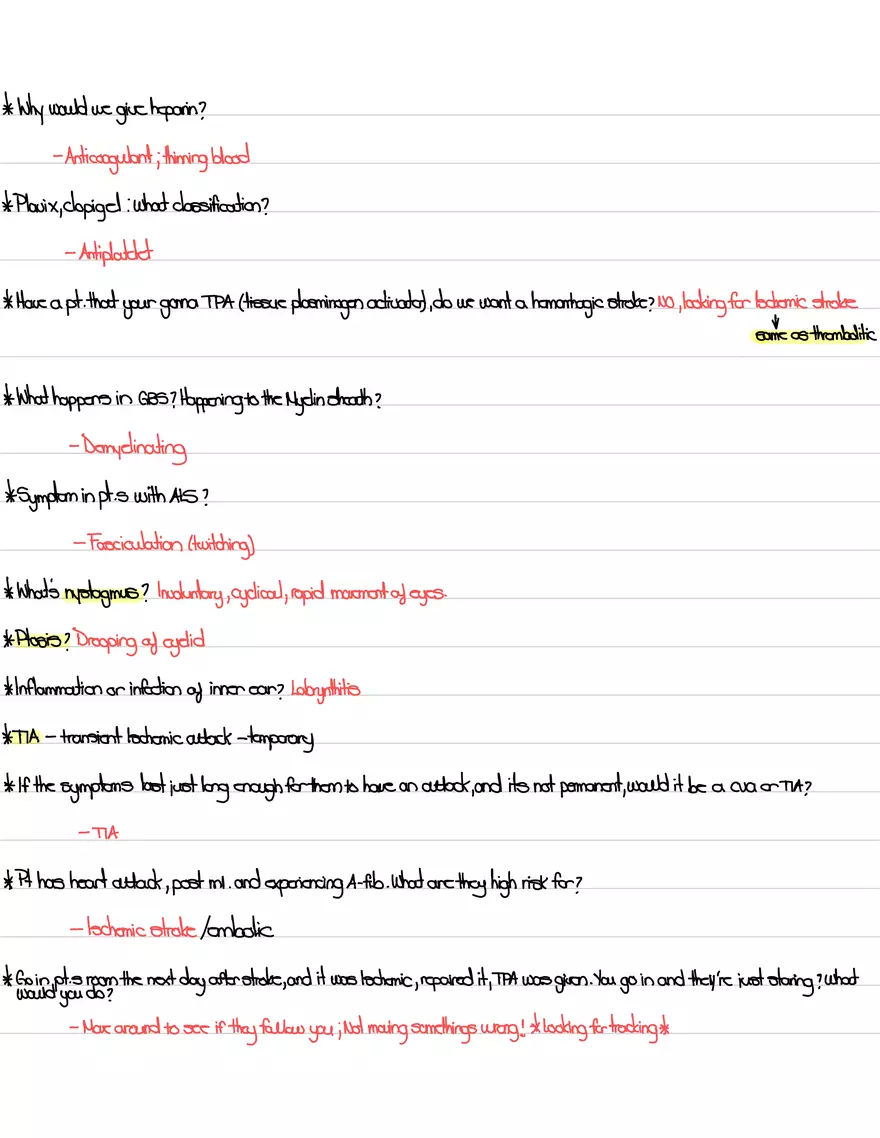 * Why would we give heparin?
- Anticoagulant; thinning blood
* Plavix, clopigel: what classification?
- Antiplatelet
* Have a pt. that your gonna TPA (tissue plasminogen activator), do we want a hemorrhagic stroke? NO, looking for Ischemic stroke
same as thrombolitic
* What happens in GBS? Happening to the Myelin sheath?
- Demyelinating
* Symptom in pt.s with ALS?
- Fasciculation (twitching)
* What's nystagmus? Involuntary, cyclical, rapid movement of eyes.
* Ptosis? Drooping of eyelid
* Inflammation or infection of inner ear? Labrynthitis
* TIA - transient Ischemic attack - temporary
* If the symptoms last just long enough for them to have an attack, and its not permanent, would it be a cva or TIA?
- TIA
* Pt has heart attack, post mI. and experiencing A-fib. What are they high risk for?
- Ischemic stroke / embolic
* Go in pt.s room the next day after stroke, and it was Ischemic, repaired it, TPA was given. You go in and they're just staring? What
would you do?
- Move around to see if they follow you; Not moving somethings wrong! * Looking for tracking *